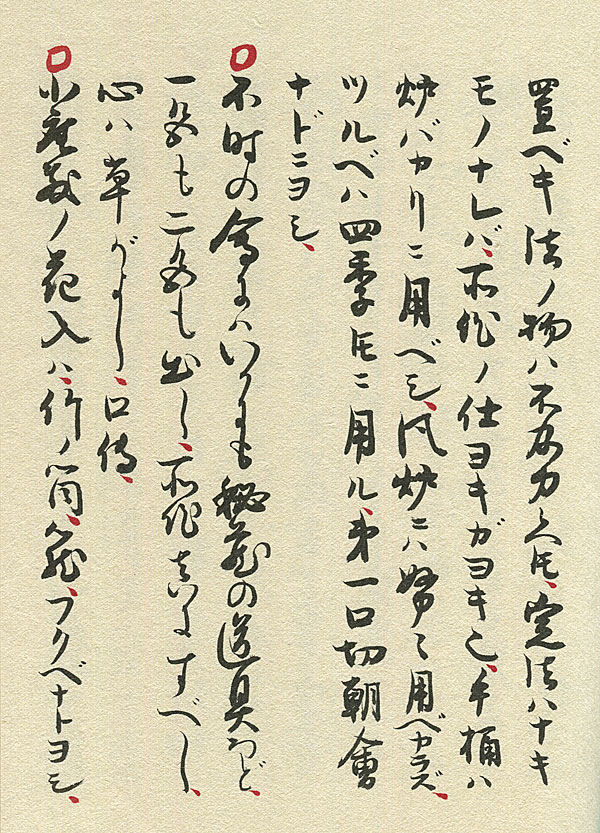 置ベキ法ノ物ハ不及力候ヘ共、定法ハナキ
モノナレバ、所作ノ仕ヨキガヨキ也、手桶ハ
炉バカリニ用ベシ、風炉ニハ努々用ベカラズ、
ツルベハ四季トモニ用ル、第一口切朝會
ナドニヨシ、
不時の會にはいかにも秘蔵の道具など、
一色も二色も出し、所作真にすべし、
心ハ草がよし、口傳、
小座敷ノ花入ハ、竹ノ筒、籠、フクベナトヨシ、